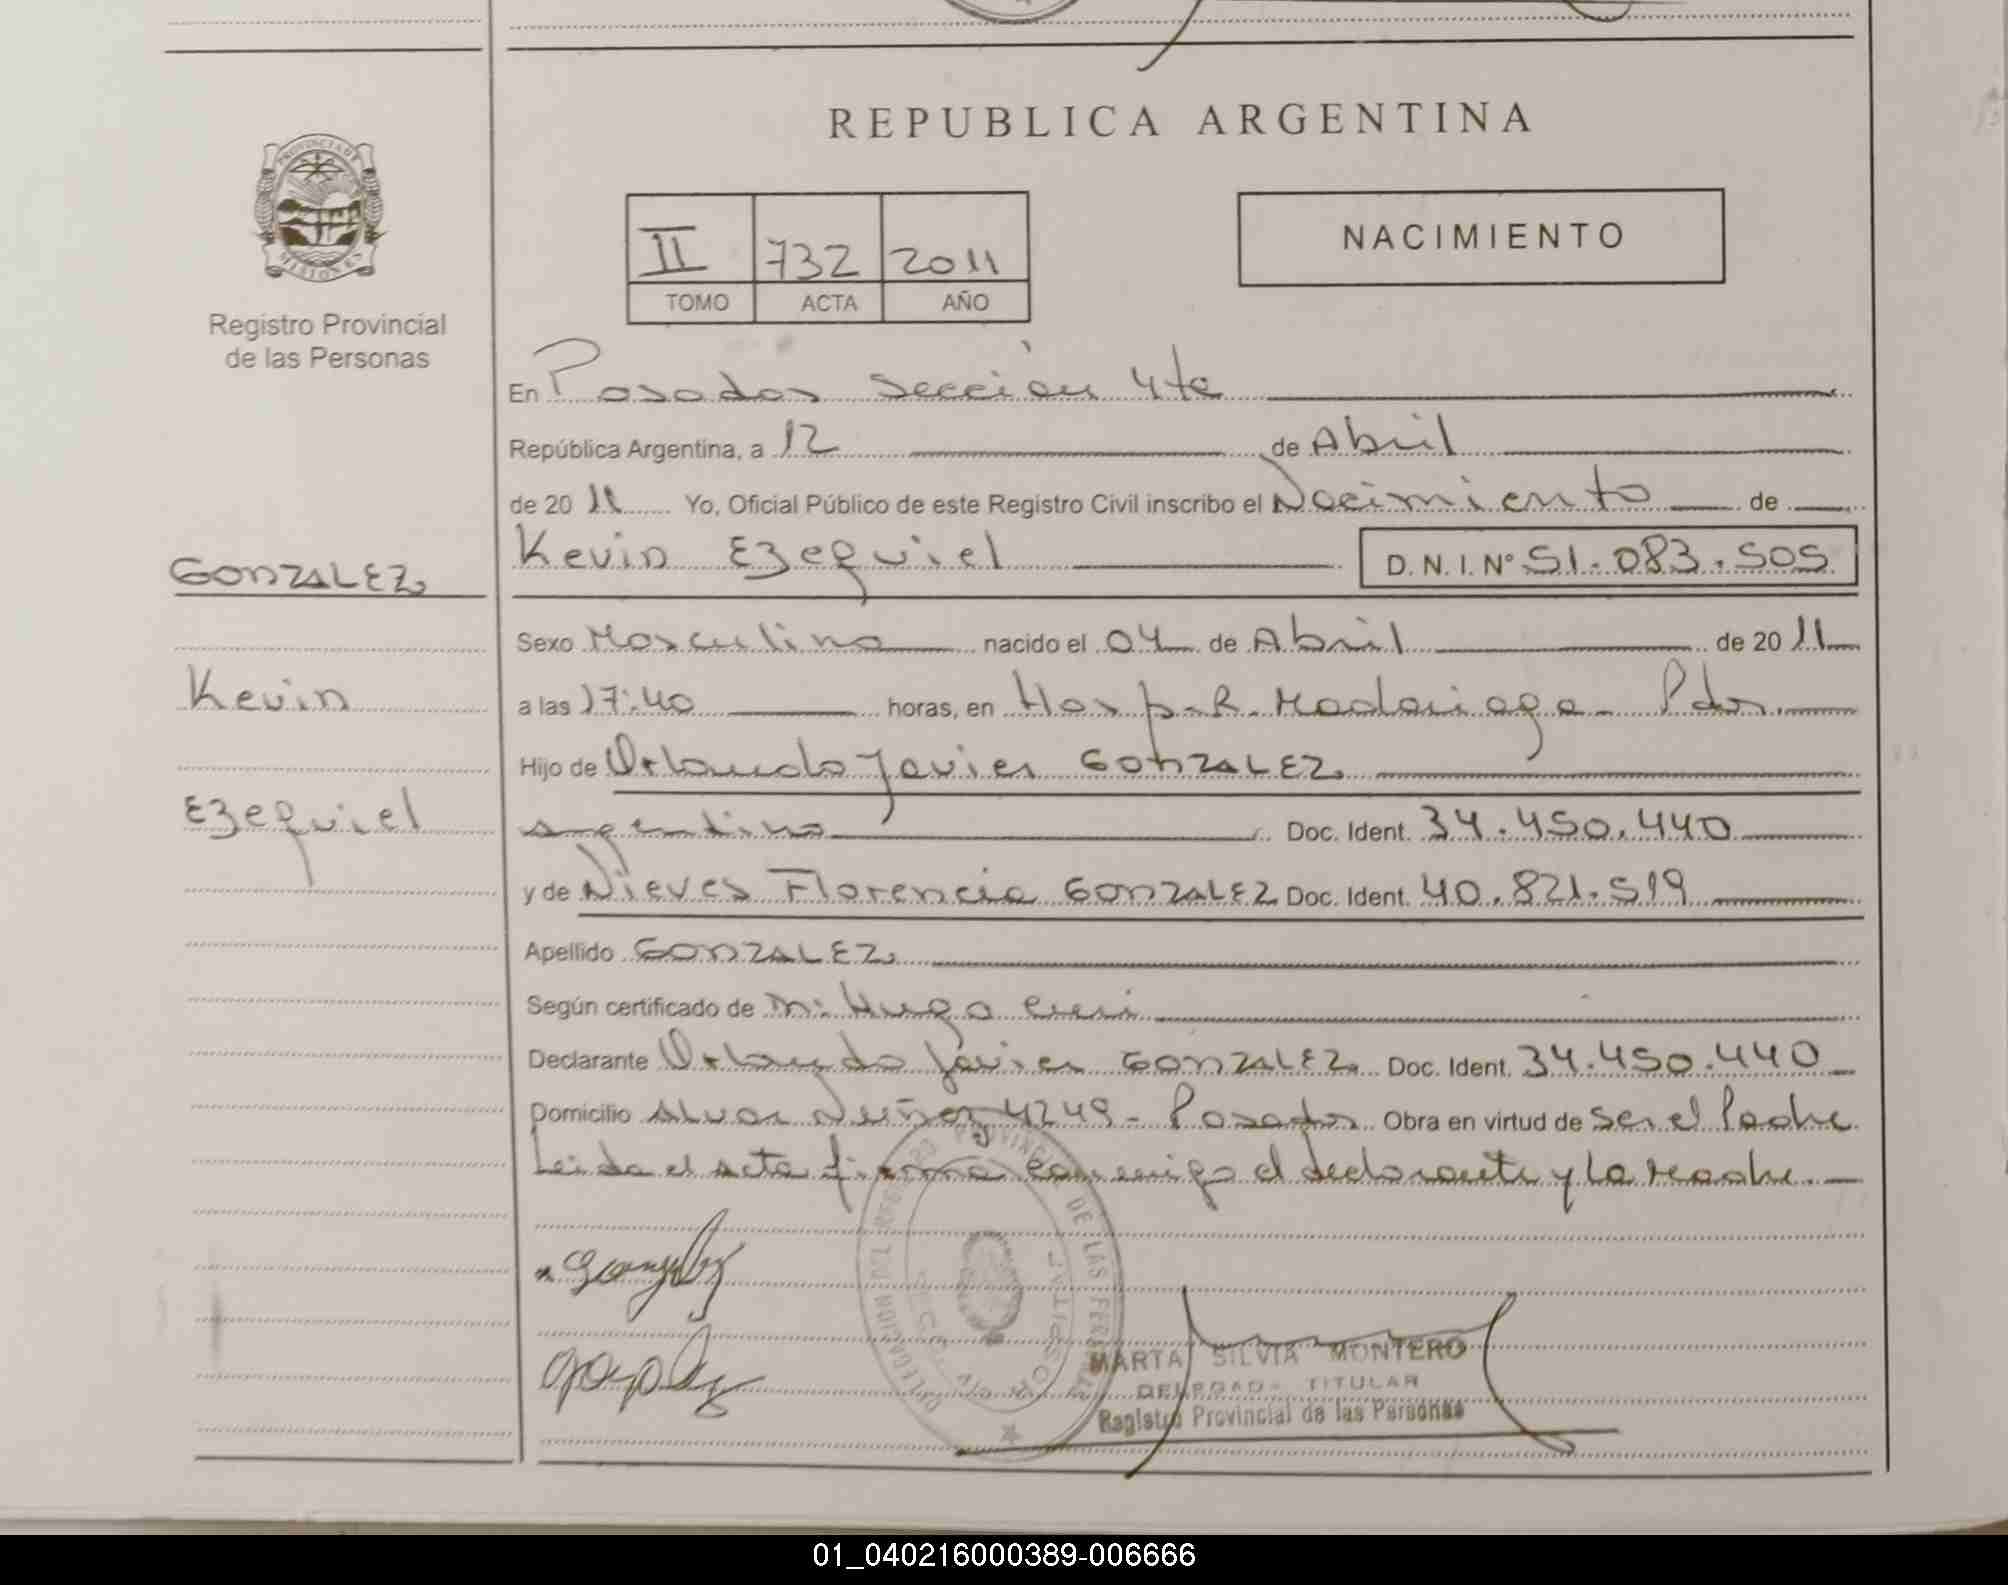 REPUBLICA ARGENTINA
PROVINCIA DE
MISIONES
Registro Provincial
de las Personas
II 732 2011
TOMO ACTA AÑO
NACIMIENTO
En Posadas sección 4ta
República Argentina, a 12 de Abril
de 2011 Yo, Oficial Público de este Registro Civil inscribo el Nacimiento de
GONZALEZ
Kevin
Ezequiel
Kevin Ezequiel D. N. I. Nº 51.083.505
Sexo Masculino nacido el 04 de Abril de 2011
a las 17:40 horas, en Hosp. R. Madariaga - Pdas.
Hijo de Orlando Javier GONZALEZ
argentino Doc. Ident. 34.450.440
y de Nieves Florencia GONZALEZ Doc. Ident. 40.821.519
Apellido GONZALEZ
Según certificado de M: Hugo
Declarante Orlando Javier GONZALEZ Doc. Ident. 34.450.440
Domicilio Alvar Nuñez 4249 - Posadas Obra en virtud de ser el Padre
Leida el acta firma conmigo el declarante y la Madre.
PROVINCIAL DE LAS PERSONAS
DELEGACION DEL REGISTRO
MARTA SILVIA MONTERO
DELEGADA TITULAR
Registro Provincial de las Personas
01_040216000389-006666